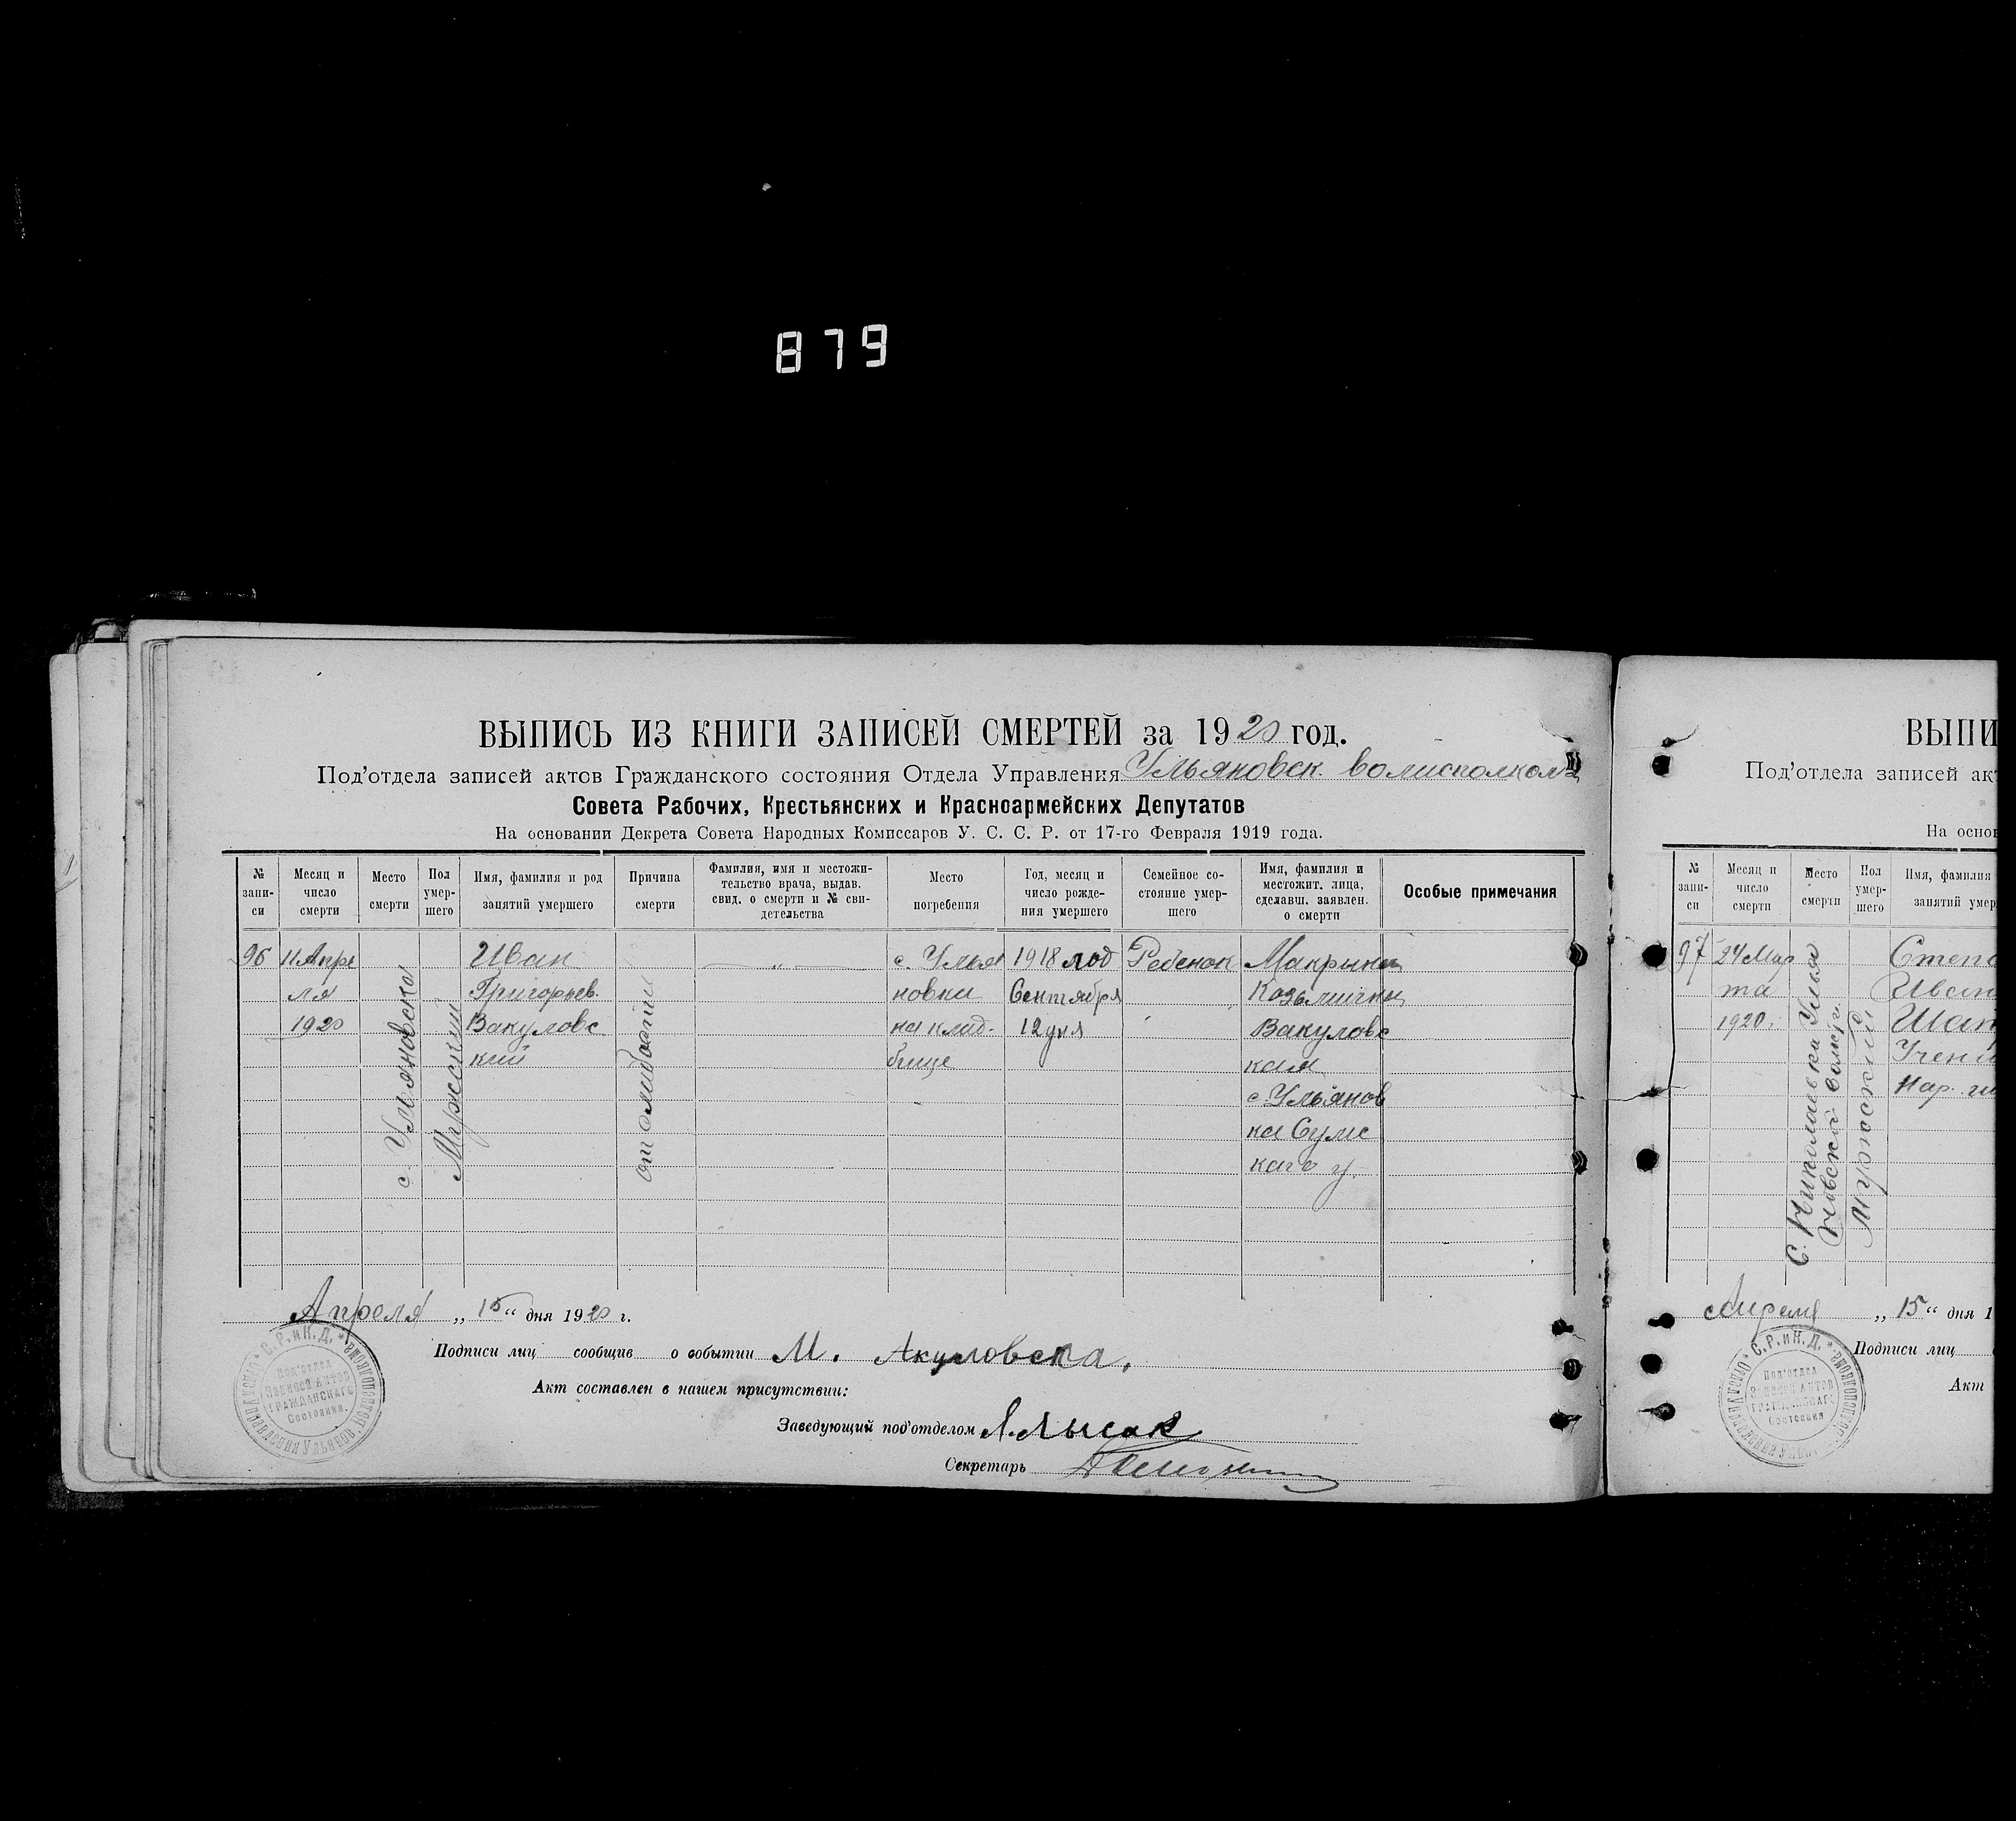 879
ВЫПИСЬ ИЗ КНИГИ ЗАПИСЕЙ СМЕРТЕЙ за 1920 год.
Под'отдела записей актов Гражданского состояния Отдела Управления Ульяновск. волисполкома
Совета Рабочих, Крестьянских и Красноармейских Депутатов
На основании Декрета Совета Народных Комиссаров У. С. С. Р. от 17-го Февраля 1919 года.
№ запи-
си
Месяц и
число
смерти
Место
смерти
Пол
умер-
шего
Имя, фамилия и род
занятий умершего
Причина
смерти
Фамилия, имя и местожи-
тельство врача, выдав.
свид. о смерти и № сви-
детельства
Место
погребения
Год, месяц и
число рожде-
ния умершего
Семейное со-
стояние умер-
шего
Имя, фамилия и
местожит. лица,
сделавш. заявлен.
о смерти
Особые примечания
96
11 Апре
ля
1920
с. Ульяновка
Мужский
Иван
Григорьев.
Вакуловс
кий
от
— „ —
с. Улья
новка
на клад-
бище
1918 год
Сентября
12 дня
Ребенок
Макрына
Козьмична
Вакуловс
кая
с. Ульянов
ка Сумс
каго у.
Апреля „15“ дня 1920 г.
Подписи лиц сообщив о событии М. Акуловска.
Акт составлен в нашем присутствии:
Заведующий под'отделом Лысак
Секретарь
С. Р. и К. Д.
Под'отдел
Записи Актов
ГРАЖДАНСКАГО
Состояния.
ВЫПИ
Под'отдела записей ак
На основ
№
запи-
си
Месяц и
число
смерти
Место
смерти
Пол
умер-
шего
Имя, фамилия
занятий умер
97
24 Мар
та
1920.
С. Николаевка Улья
новской волости
Мужский
Степа
Иван
Шап
Учени
Нар.
Апреля „15“ дня 1
Подписи лиц
Акт
С. Р. и К. Д.
Под'отдел
Записи Актов
ГРАЖДАНСКАГО
Состояния